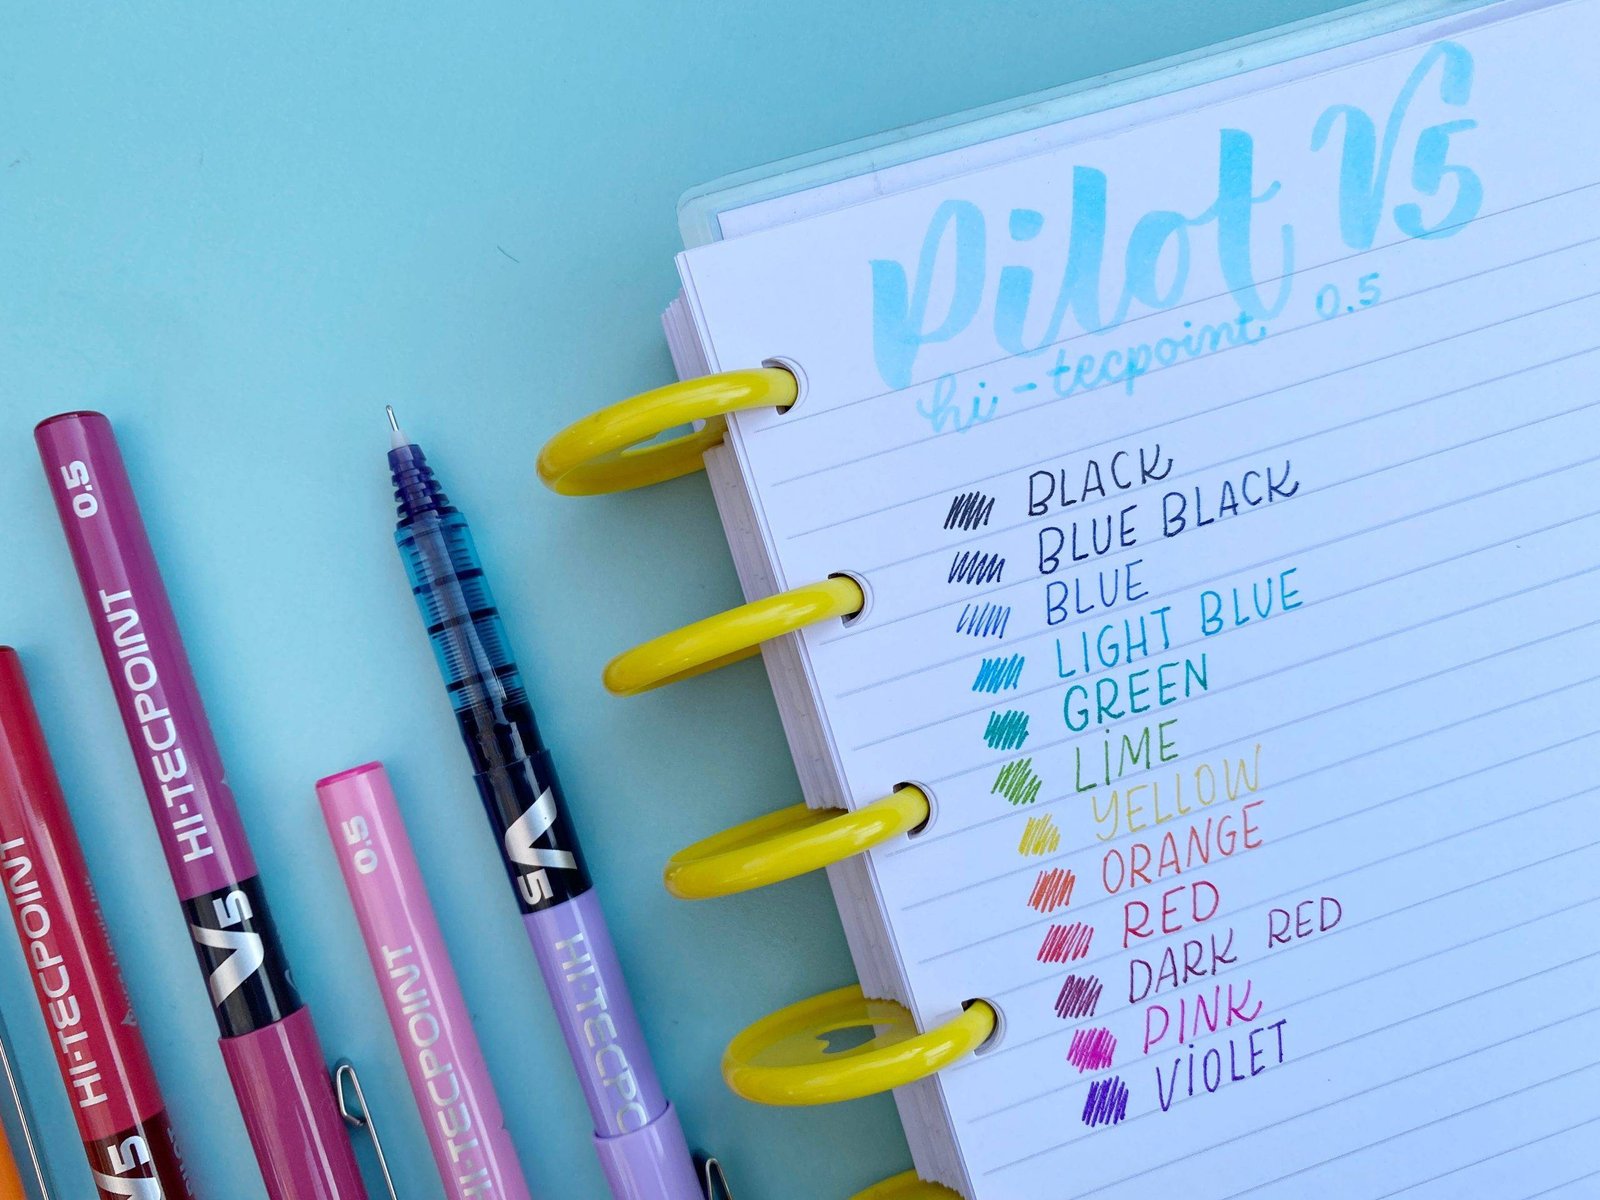 Pilot V5
hi-tecpoint 0.5
BLACK
BLUE BLACK
BLUE
LIGHT BLUE
GREEN
LiME
YELLOW
ORANGE
RED
DARK RED
PINK
ViOLET
HI-TECPOINT
V5
0.5
HI-TECPOINT
V5
0.5
HI-TECPOINT
V5
HI-TECPO